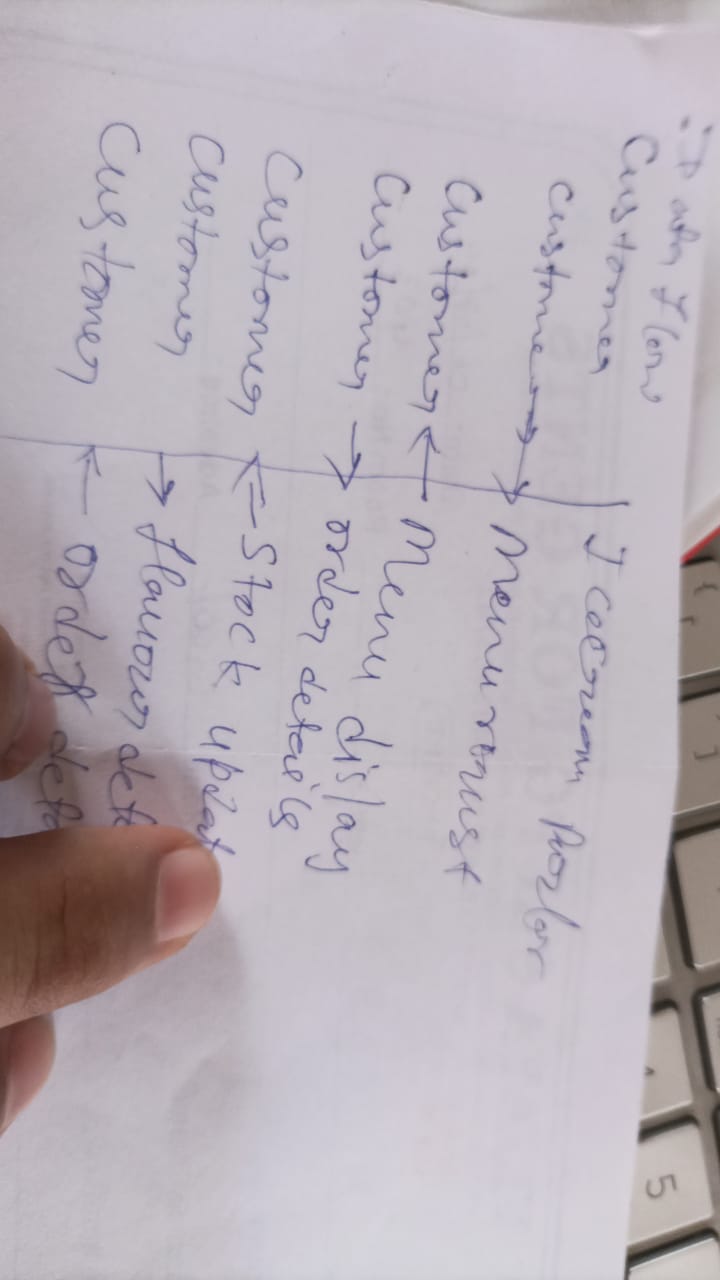 :Data Flow
Customer | IceCream Parlor
Customer → Menu request
Customer ← Menu display
Customer → order details
Customer ← Stock updat
Customer → flavour deta
Customer ← order deta
5